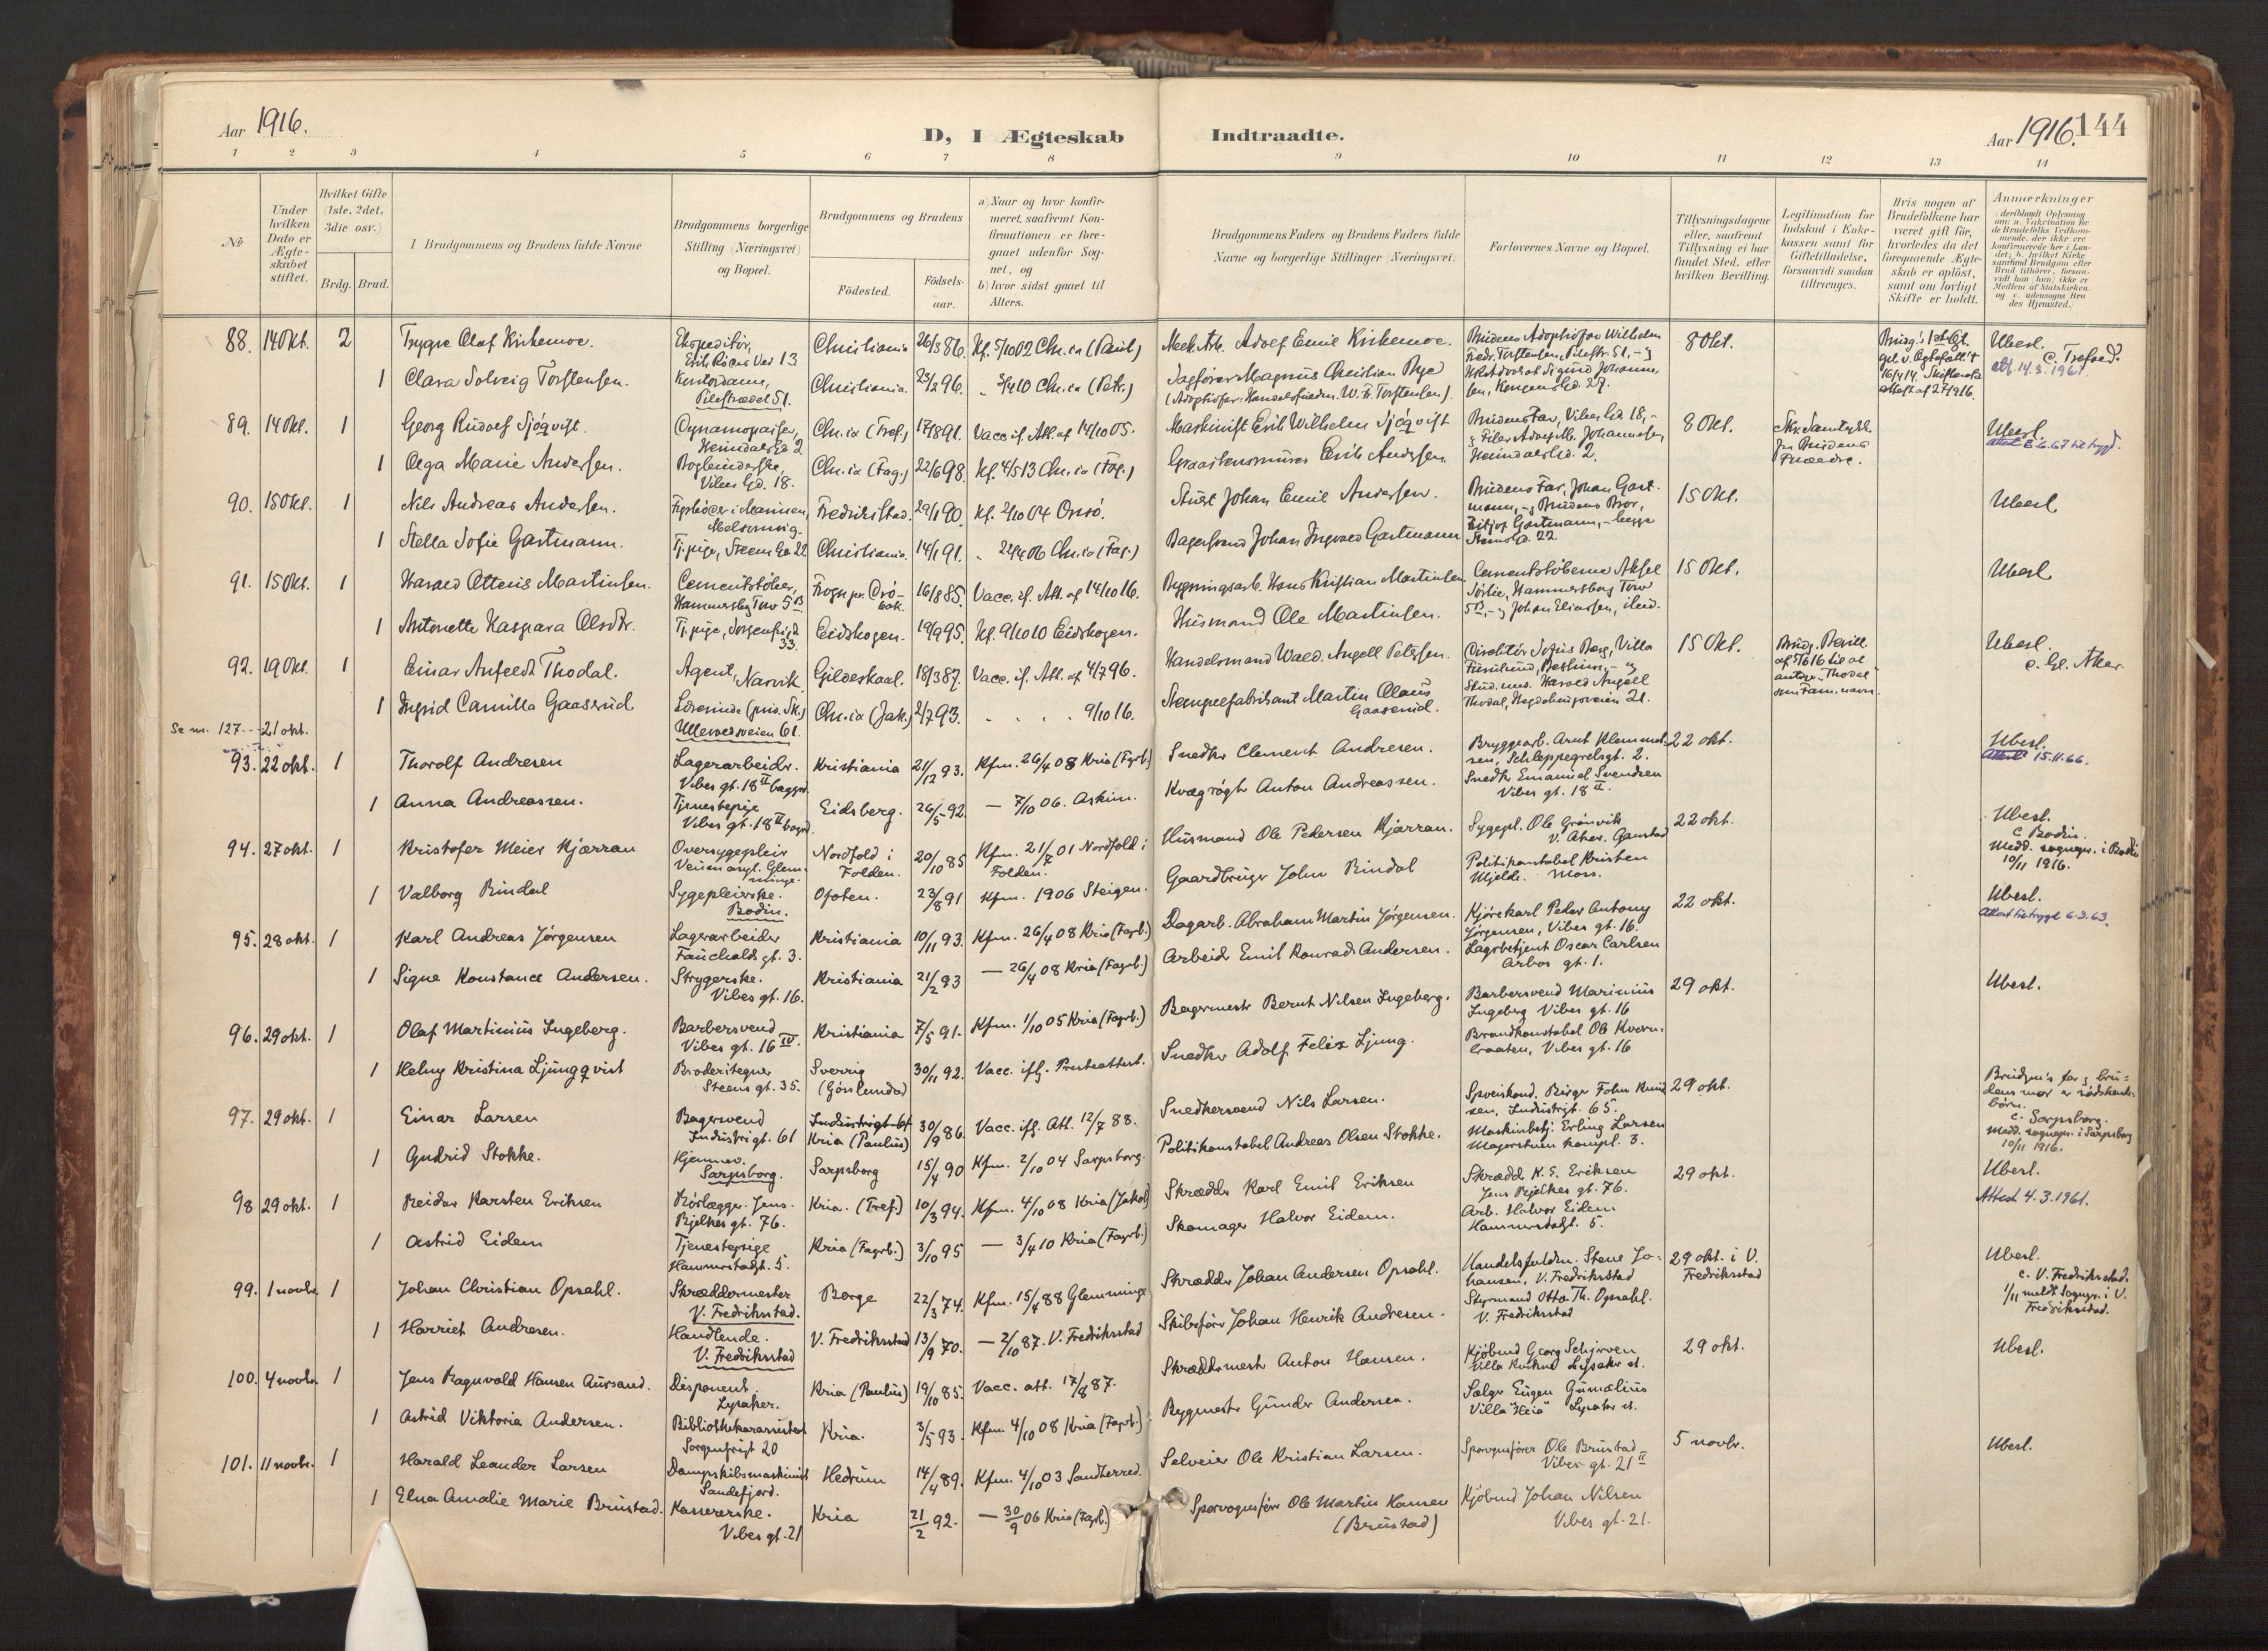 Aar 1916.
D, I Ægteskab Indtraadte.
Aar 1916. 144
1 2 3 4 5 6 7 8 9 10 11 12 13 14
No
Under hvilken Dato er Ægteskabet stiftet.
Hvilket Gifte (1ste, 2det, 3die osv.)
Brdg. Brud.
I Brudgommens og Brudens fulde Navne
Brudgommens borgerlige Stilling (Næringsvei) og Bopæl.
Brudgommens og Brudens
Födested. Födselsaar.
a) Naar og hvor konfirmeret, saafremt Konfirmationen er foregaaet udenfor Sognet, og
b) hvor sidst gaaet til Alters.
Brudgommens Faders og Brudens Faders fulde Navne og borgerlige Stillinger (Næringsvei.
Forlovernes Navne og Bopæl.
Tillysningsdagene eller, saafremt Tillysning ei har fundet Sted, efter hvilken Bevilling.
Legitimation for Indskud i Enkekassen samt for Giftetilladelse, forsaavidt saadan tiltrænges.
Hvis nogen af Brudefolkene har været gift för, hvorledes da det foregaaende Ægteskab er oplöst, samt om lovligt Skifte er holdt.
Anmerkninger
88. 14 Okt. 2 Trygve Olaf Kirkemoe. Ekspeditör, Christiania 26/3 86. Kf. 5/10 02 Chr.ia (Paul) Mek. Arb. Adolf Emil Kirkemoe. 8 Okt. Ubesl.
1 Clara Solveig Torstensen. Kontordame, Pilestrædet 51. Christiania. 23/2 96. " 3/4 10 Chr.ia (Petr.) Sagförer Magnus Christian Bye
89. 14 Okt. 1 Georg Rudolf Sjöqvist Dynamopasser, Heimdalsgd. 2. Chr.ia (Tref.) 17/8 91. Vacc. if. Att. af 14/10 05. Maskinist Erik Wilhelm Sjöqvist Brudens Far, Vibes Gd 18, 8 Okt. Ubesl.
1 Olga Marie Andersen. Vibes Gd. 18. Chr.ia (Fag.) 22/6 98. Kf. 4/5 13 Chr.ia (Fag.) Erik Andersen. Heimdalsgd. 2.
90. 15 Okt. 1 Nils Andreas Andersen. Fyrböter i Marinen, Fredrikstad. 29/1 90. Kf. 2/10 04 Onsö. Johan Emil Andersen. Brudens Far, Johan Gastmann, 15 Okt. Ubesl.
1 Stella Sofie Gastmann. Tj.pige, Steens Gd 22 Christiania. 14/1 91. " 22/4 06 Chr.ia (Fag.) Johan Ingvald Gastmann Steens Gd. 22.
91. 15 Okt. 1 Harald Ottenis Martinsen. Cementstöber, Hammersborg Torv 5B 16/8 85. Vacc. if. Att. af 14/10 16. Bygningsarb. Hans Kristian Martinsen Cementstöberne Aksel 15 Okt. Ubesl
1 Antonette Kaspara Olsdtr. Tj.pige, Sorgenfrigd. 33. Eidskogen. 19/9 95. Kf. 9/10 10 Eidskogen. Husmand Ole Martinsen. Johan Eliassen,
92. 19 Okt. 1 Einar Anfeldt Thodal. Agent, Narvik Gildeskaal. 18/3 87. Vacc. if. Att. af 4/7 96. Handelsmand Wald. Angell Petersen. 15 Okt. Ubesl.
1 Ingrid Camilla Gaaserud Lærerinde (priv. Sk.) Ullevoldsveien 61. Chr.ia (Jak.) 2/7 93. " " " 9/10 16. Stempelfabrikant Martin Olaus Gaaserud. Thodal,
Se nr. 127 21 okt.
93. 22 okt. 1 Thorolf Andresen Lagerarbeider. Vibes gt. 18 II bagd. Kristiania 21/12 93. Kfm. 26/4 08 Kria (Fagrb.) Snedker Clement Andresen. Bryggearb. Arnt Klemmetsen, Schleppegrelsgt. 2. 22 okt. Ubesl. 15.11.66.
1 Anna Andreassen. Tjenestepige Vibes gt. 18 II bagd. Eidsberg. 26/5 92. — 7/10 06. Askim. Kvægrögter Anton Andreassen. Snedker Emanuel Svendsen Vibes gt. 18 II.
94. 27 okt. 1 Kristofer Meier Kjærran Oversygepleier Nordfold i Folden. 20/10 85 Kfm. 21/7 01 Nordfold i Folden. Husmand Ole Pedersen Kjærran. Sygepl. Ole Grönvik 22 okt. Ubesl. c. Bodin. Medd. sognepr. i Bodin 10/11 1916.
1 Valborg Rindal Sygepleierske. Bodin. Ofoten. 23/8 91 Kfm. 1906 Steigen. Gaardbruger John Rindal Politikonstabel Kristen Mjelde. Moss.
95. 28 okt. 1 Karl Andreas Jörgensen Lagerarbeider Fauchalds gt. 3. Kristiania 10/11 93. Kfm. 26/4 08 Kria (Fagrb.) Dagarb. Abraham Martin Jörgensen. Kjörekarl Peder Antony Jörgensen, Vibes gt. 16. 22 okt. Ubesl.
1 Signe Konstance Andersen. Strygerske. Vibes gt. 16. Kristiania 21/2 93 — 26/4 08 Kria (Fagrb.) Arbeider Emil Konrad Andersen. Lagerbetjent Oscar Carlsen Arbos gt. 1.
96. 29 okt. 1 Olaf Martinius Ingeberg. Barbersvend Vibes gt. 16 IV. Kristiania 7/5 91. Kfm. 1/10 05 Kria (Fagrb.) Bagermester Bernt Nilsen Ingeberg. Barbersvend Marinius Ingeberg Vibes gt. 16 29 okt. Ubesl.
1 Helny Kristina Ljungqvist Broderitegner Steens gt. 35. Sverrig 30/11 92. Vacc. iflg. Presteattest. Snedker Adolf Felix Ljung. Brandkonstabel Ole Vibes gt. 16
97. 29 okt. 1 Einar Larsen Bagersvend Industrigt. 61 Kria (Paulus) 30/9 86. Vacc. iflg. Att. 12/7 88. Snedkersvend Nils Larsen. Industrigt. 65. 29 okt. Brudgm's far og brudens mor er södskendebörn. c. Sarpsborg. Medd. sognepr. i Sarpsborg 10/11 1916.
1 Gudrid Stokke. Hjemmev. Sarpsborg. Sarpsborg 15/4 90 Kfm. 2/10 04 Sarpsborg. Politikonstabel Andreas Olsen Stokke. Maskinbetj. Erling Larsen
98 29 okt. 1 Reidar Karsten Eriksen Rörlægger. Jens Bjelkes gt. 76. Kria. (Tref.) 10/3 94. Kfm. 4/10 08 Kria (Jakob) Skrædder Karl Emil Eriksen Skrædder K. E. Eriksen Jens Bjelkes gt. 76. 29 okt. Ubesl. Attest 4.3.1961.
1 Astrid Eidem Tjenestepige Hammerstadgt. 5. Kria (Fagrb.) 3/10 95 — 3/4 10 Kria (Fagrb.) Skomager Halvor Eidem. Arb. Halvor Eidem Hammerstadgt. 5.
99. 1 novbr. 1 Johan Christian Opsahl. Skræddermester V. Fredriksstad. Borge 22/3 74. Kfm. 15/4 88 Glemminge Skrædder Johan Andersen Opsahl. V. Fredriksstad 29 okt. i V. Fredriksstad Ubesl. c. V. Fredriksstad. 1/11 meldt sognepr. i V. Fredriksstad.
1 Harriet Andresen. Handlende. V. Fredriksstad V. Fredriksstad 13/9 70. — 2/10 87. V. Fredriksstad Skibsförer Johan Henrik Andresen. Styrmand Otto Th. Opsahl. V. Fredriksstad
100. 4 novbr. 1 Jens Ragnvald Hansen Aursand. Disponent. Lysaker. Kria (Paulus) 19/10 85. Vacc. att. 17/8 87. Skræddermester Anton Hansen. Kjöbmd Georg Schjerven 29 okt. Ubesl.
1 Astrid Viktoria Andersen. Bibliothekarassistent Sorgenfrigt 20 Kria. 3/5 93. Kfm. 4/10 08 Kria (Fagrb.) Bygmester Gunder Andersen. Selger Eugen Gumælius Villa "Heia" Lysaker st.
101. 11 novbr. 1 Harald Leander Larsen Dampskibsmaskinist Sandefjord. Hedrum 14/4 89. Kfm. 4/10 03 Sandherred. Selveier Ole Kristian Larsen. Sporvognsförer Ole Brustad Vibes gt. 21 II 5 novbr. Ubesl.
1 Elna Amalie Marie Brustad. Kassererske. Vibes gt. 21 Kria 21/2 92. — 30/9 06 Kria (Fagrb.) Sporvognsförer Ole Martin Hansen (Brustad) Kjöbmd Johan Nilsen Vibes gt. 21.